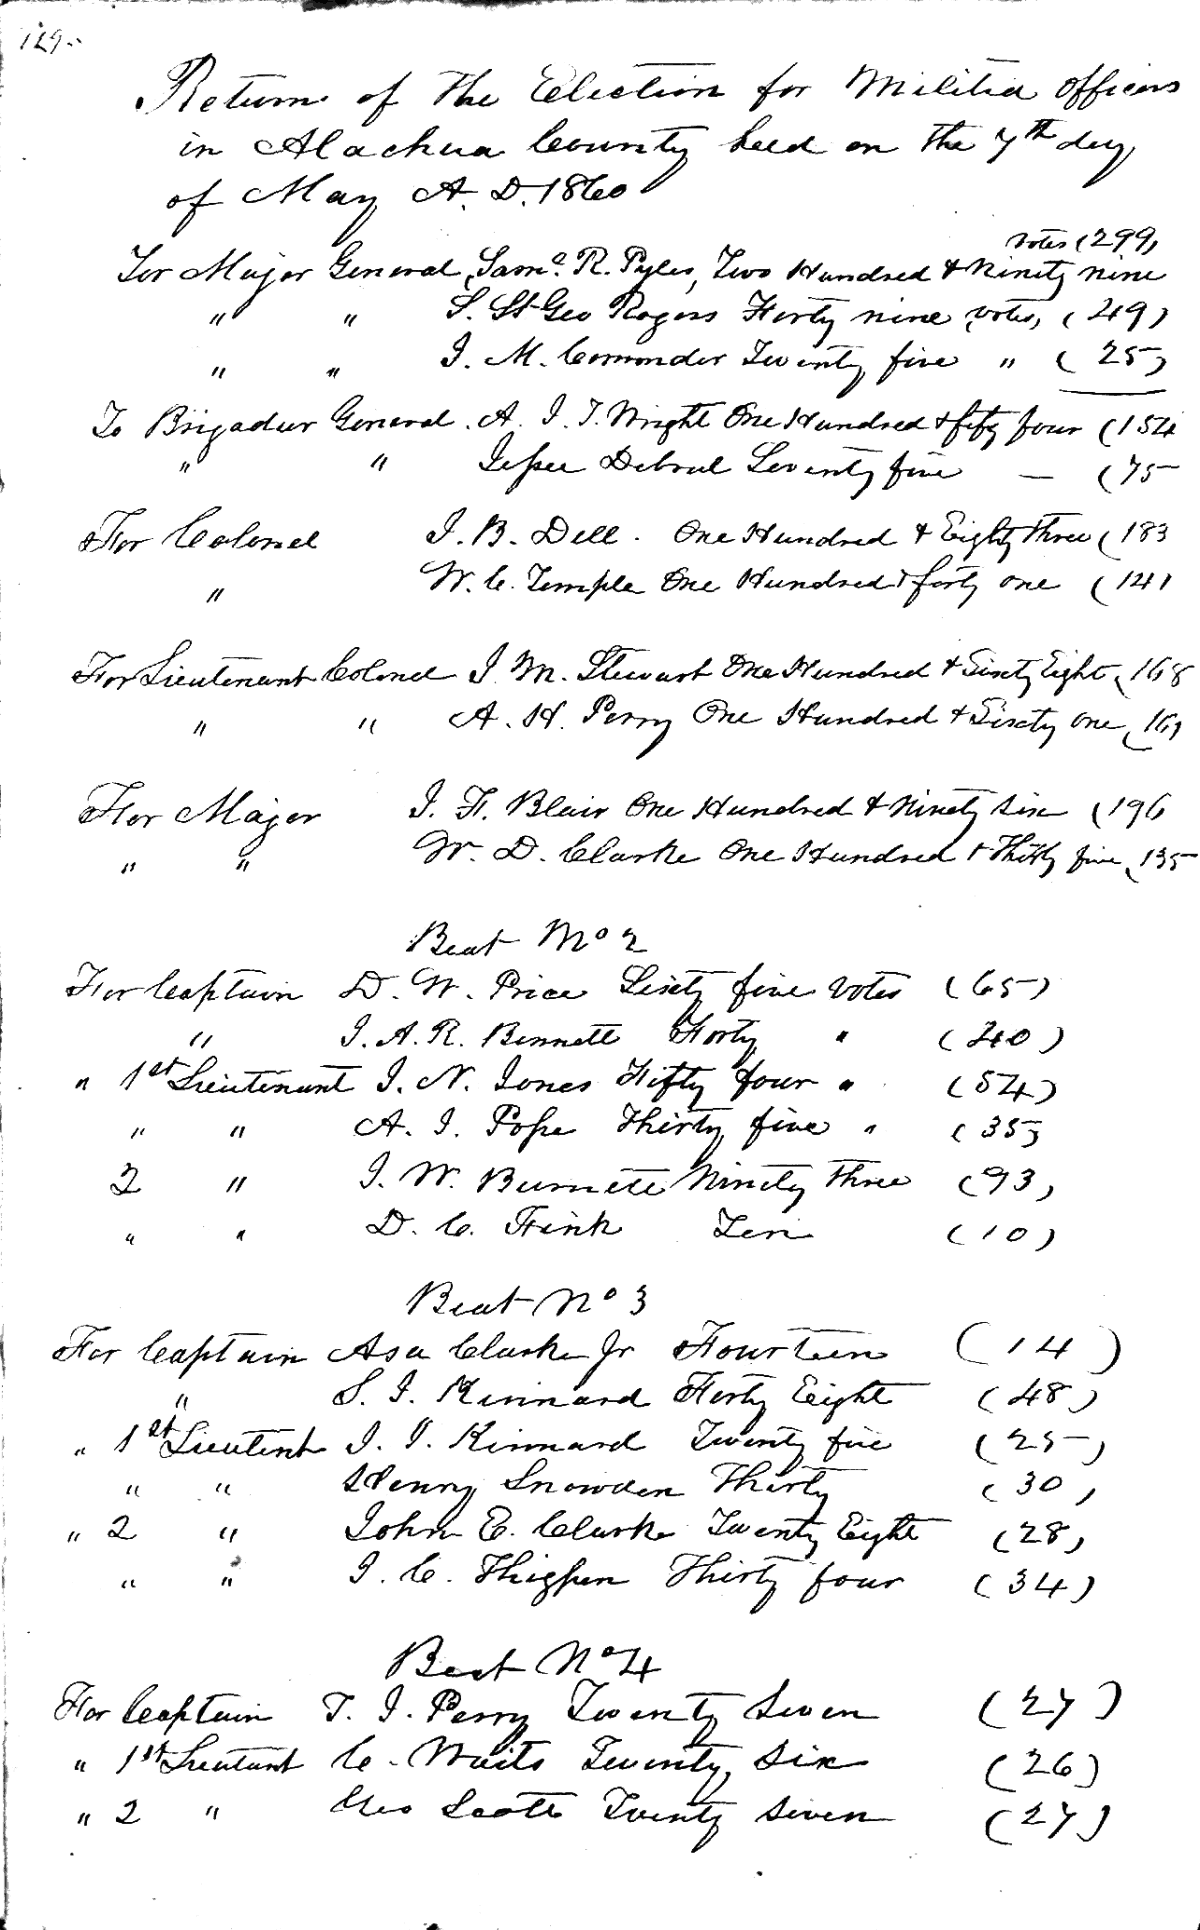 129.
Return of the Election for Militia Officers
in Alachua County held on the 7th day
of May A. D. 1860
votes (299)
For Major General, Saml. R. Pyles, Two Hundred & Ninety nine
" " S. St Geo Rogers Forty nine votes, (49)
" " J. M. Commander Twenty five " (25)
To Brigadier General. A. J. T. Wright One Hundred & fifty four (154
" " Jessee Seventy five — (75
For Colonel J. B. Dell. One Hundred & Eighty three (183
" W. C. Temple One Hundred & forty one (141
For Lieutenant Colonel J. M. Stewart One Hundred & Sixty Eight (168
" " A. H. Perry One Hundred & Sixty one (161
For Major J. F. Blair One Hundred & Ninety six (196
" " W. D. Clarke One Hundred & Thirty five (135
Beat No 2
For Captain D. W. Price Sixty five votes (65)
" J. A. R. Bennett Forty " (40)
" 1st Lieutenant J. N. Jones Fifty four " (54)
" " A. J. Pope Thirty five " (35)
2 " J. W. Burnett Ninety three (93)
" " D. C. Fink Ten (10)
Beat No 3
For Captain Asa Clarke Jr Fourteen (14)
" S. J. Kinnard Forty Eight (48)
" 1st Lieutent J. J. Kinnard Twenty five (25)
" " Henry Snowden Thirty (30)
" 2 " John E. Clarke Twenty Eight (28)
" " J. C. Thigpen Thirty four (34)
Beat No 4
For Captain T. J. Perry Twenty Seven (27)
" 1st Lieutant C. Waits Twenty six (26)
" 2 " Geo Scott Twenty seven (27)